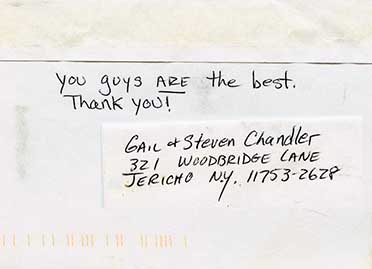 You guys ARE the best.
Thank you!
GAIL & Steven Chandler
321 WOODBRIDGE LANE
JERICHO N.Y. 11753-2628